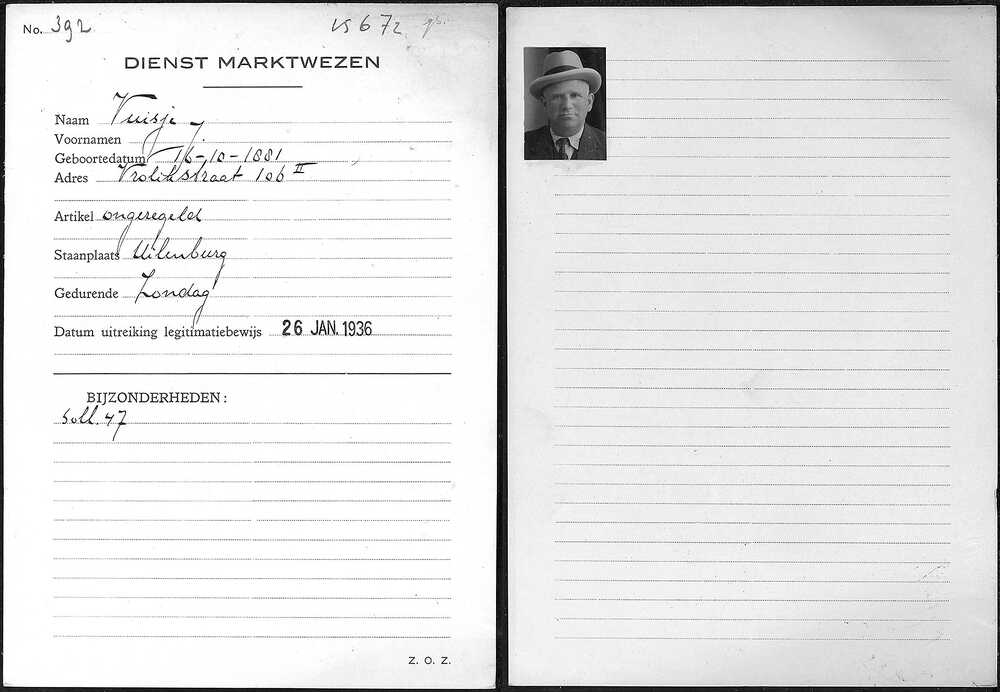 No. 392
VS 672
DIENST MARKTWEZEN
Naam Vuisje
Voornamen J
Geboortedatum 16-10-1881
Adres Vrolikstraat 106 II
Artikel ongeregeld
Staanplaats Uilenburg
Gedurende Zondag
Datum uitreiking legitimatiebewijs 26 JAN. 1936
BIJZONDERHEDEN:
Soll. 47
Z. O. Z.